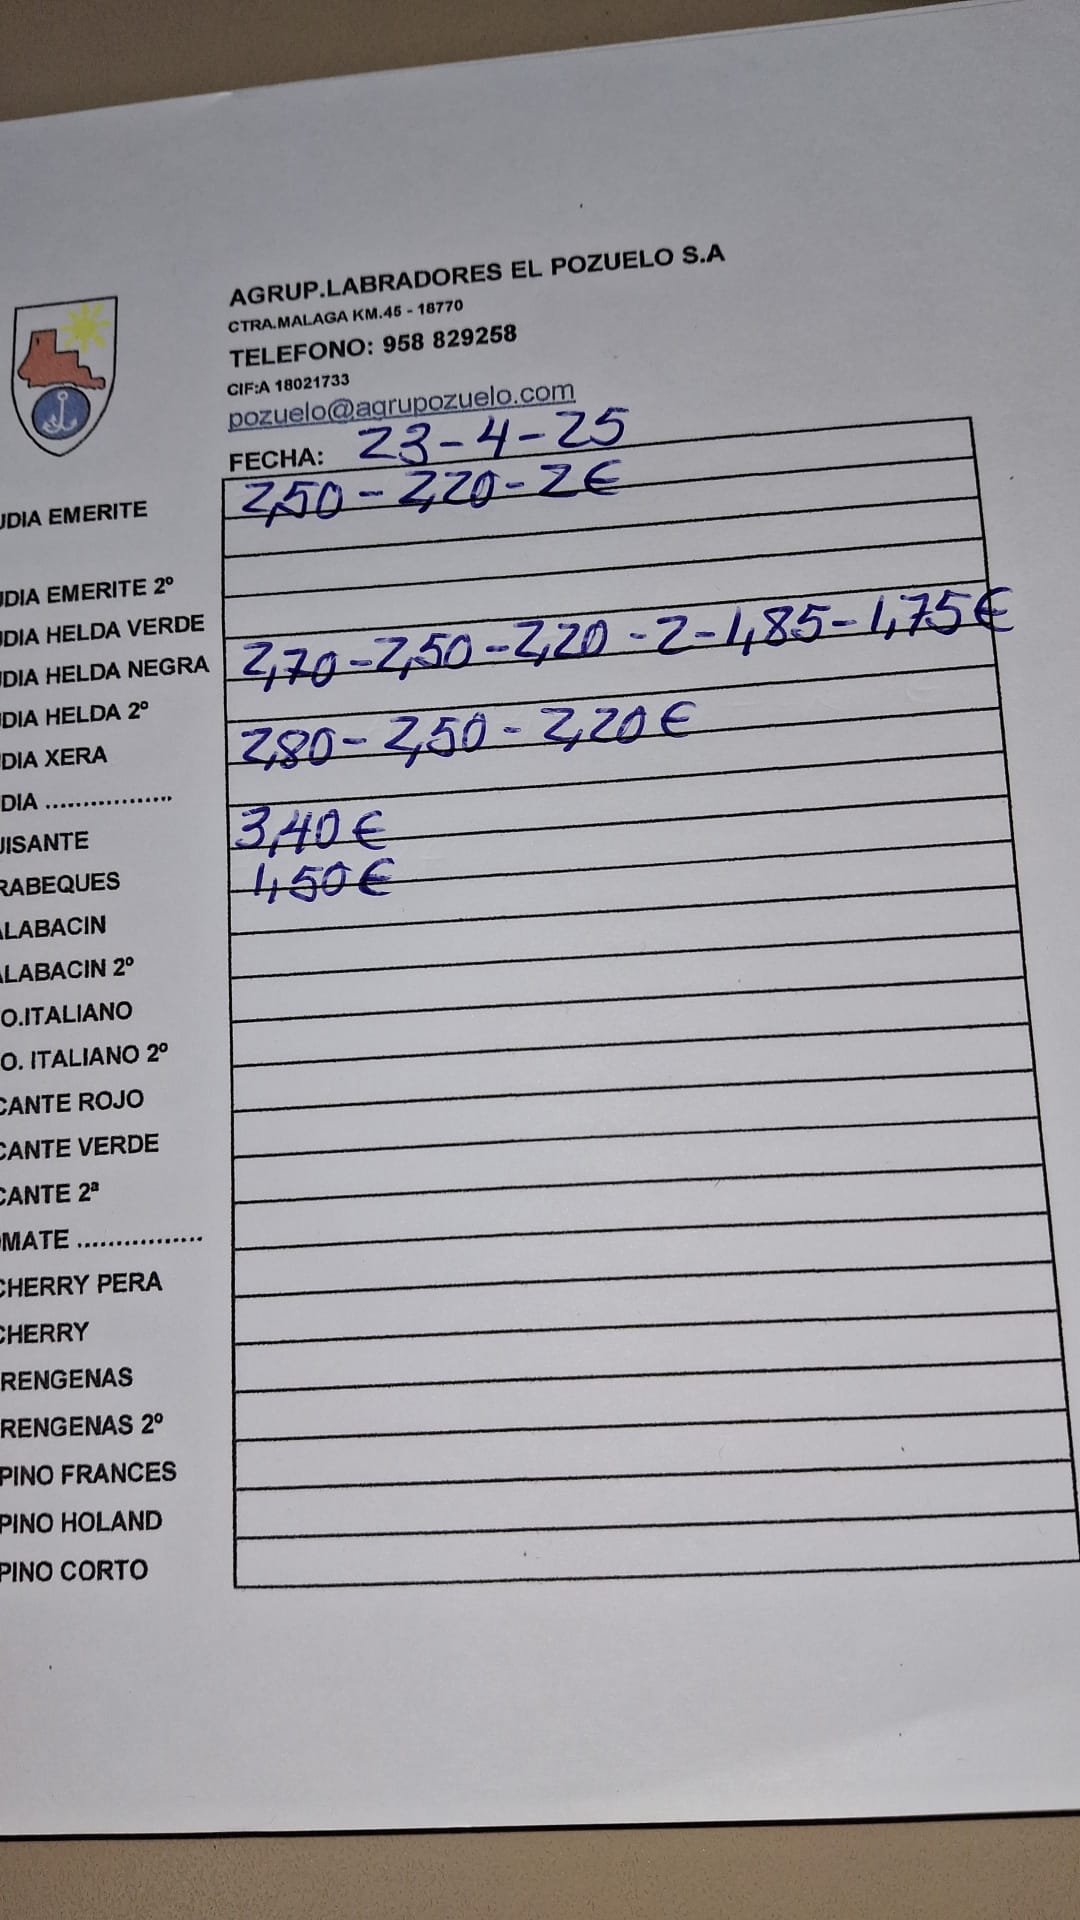 AGRUP.LABRADORES EL POZUELO S.A
CTRA.MALAGA KM.45 - 18770
TELEFONO: 958 829258
CIF:A 18021733
pozuelo@agrupozuelo.com
FECHA: 23-4-25
UDIA EMERITE 2,50-2,20-2€
UDIA EMERITE 2º
UDIA HELDA VERDE
UDIA HELDA NEGRA 2,70-2,50-2,20-2-1,85-1,75€
DIA HELDA 2º
DIA XERA 2,80-2,50-2,20€
DIA .................
UISANTE 3,40€
RABEQUES 1,50€
ALABACIN
ALABACIN 2º
O.ITALIANO
O. ITALIANO 2º
CANTE ROJO
CANTE VERDE
CANTE 2ª
OMATE ................
CHERRY PERA
CHERRY
RENGENAS
RENGENAS 2º
PINO FRANCES
PINO HOLAND
PINO CORTO